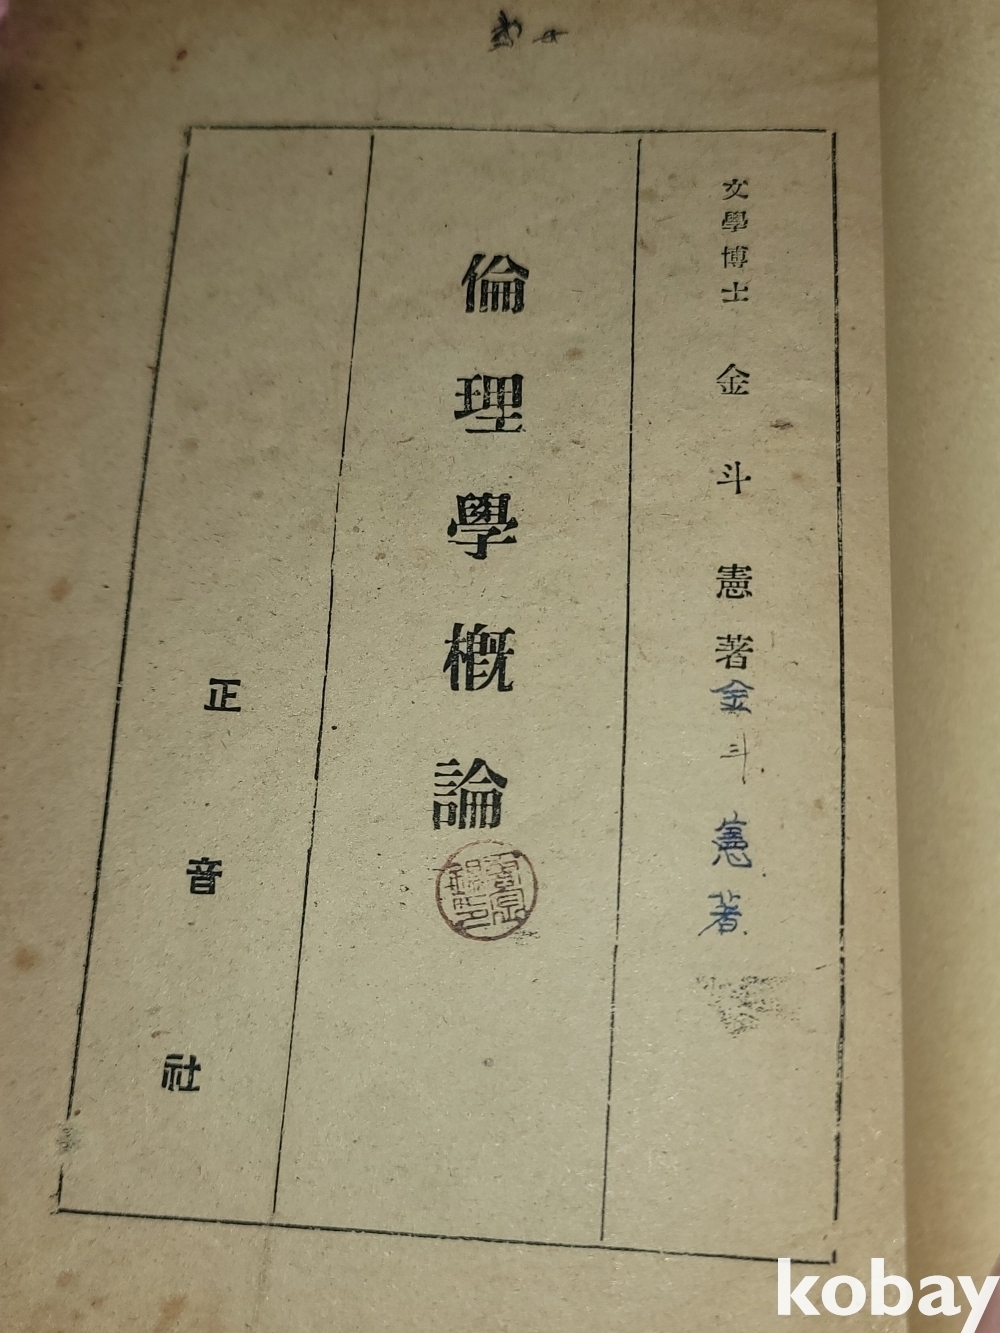 文學博士 金斗憲著
金斗憲著
倫理學概論
正音社
kobay